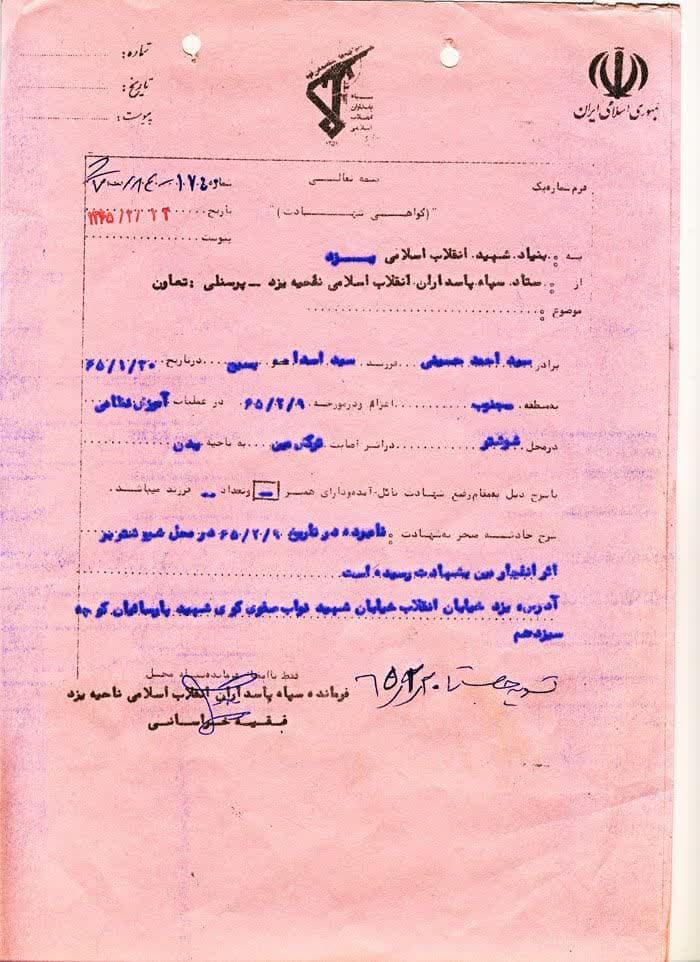 شماره:
تاریخ:
پیوست:
سپاه
پاسداران
انقلاب
اسلامی
جمهوری اسلامی ایران
فرم شماره یک
بسمه تعالی
شماره
"(گواهی شهادت)"
تاریخ ۱۳۶۵/۲/۱۴
پیوست
به : بنیاد شهید انقلاب اسلامی یزد
از : ستاد سپاه پاسداران انقلاب اسلامی ناحیه یزد - پرسنلی : تعاون
موضوع :
برادر سید احمد حسینی فرزند سید اسدا عضو بسیج در تاریخ ۶۵/۱/۲۰
به منطقه جنوب اعزام و در مورخه ۶۵/۲/۹ در عملیات آموزش نظامی
در محل شوشتر در اثر اصابت ترکش مین به ناحیه بدن
بشرح ذیل به مقام رفیع شهادت نائل آمده و دارای همسر - و تعداد - فرزند میباشد.
شرح حادثه منجر به شهادت : نامبرده در تاریخ ۶۵/۲/۹ در محل شوشتر بر
اثر انفجار مین بشهادت رسیده است
آدرس: یزد خیابان انقلاب خیابان شهید نواب صفوی کوی شهید پارسائیان کوچه
سیزدهم
فقط با امضاء فرمانده سپاه محل
فرمانده سپاه پاسداران انقلاب اسلامی ناحیه یزد
فقیه خراسانی